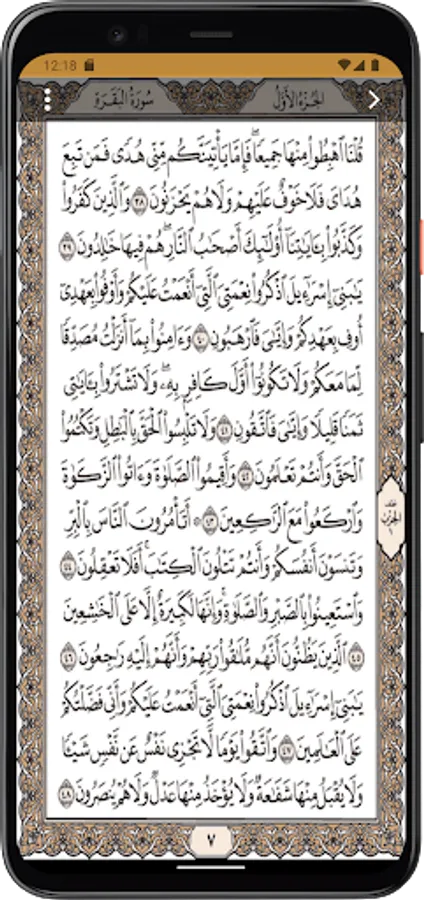 12:18
الجزء الأول
سورة البقرة
قُلْنَا ٱهْبِطُوا۟ مِنْهَا جَمِيعًاۖ فَإِمَّا يَأْتِيَنَّكُم مِّنِّى هُدًى فَمَن تَبِعَ
هُدَاىَ فَلَا خَوْفٌ عَلَيْهِمْ وَلَا هُمْ يَحْزَنُونَ ٣٨ وَٱلَّذِينَ كَفَرُوا۟
وَكَذَّبُوا۟ بِـَٔايَـٰتِنَآ أُو۟لَـٰٓئِكَ أَصْحَـٰبُ ٱلنَّارِۖ هُمْ فِيهَا خَـٰلِدُونَ ٣٩
يَـٰبَنِىٓ إِسْرَٰٓءِيلَ ٱذْكُرُوا۟ نِعْمَتِىَ ٱلَّتِىٓ أَنْعَمْتُ عَلَيْكُمْ وَأَوْفُوا۟ بِعَهْدِىٓ
أُوفِ بِعَهْدِكُمْ وَإِيَّـٰىَ فَٱرْهَبُونِ ٤٠ وَءَامِنُوا۟ بِمَآ أَنزَلْتُ مُصَدِّقًا
لِّمَا مَعَكُمْ وَلَا تَكُونُوٓا۟ أَوَّلَ كَافِرٍۭ بِهِۦۖ وَلَا تَشْتَرُوا۟ بِـَٔايَـٰتِى
ثَمَنًا قَلِيلًا وَإِيَّـٰىَ فَٱتَّقُونِ ٤١ وَلَا تَلْبِسُوا۟ ٱلْحَقَّ بِٱلْبَـٰطِلِ وَتَكْتُمُوا۟
ٱلْحَقَّ وَأَنتُمْ تَعْلَمُونَ ٤٢ وَأَقِيمُوا۟ ٱلصَّلَوٰةَ وَءَاتُوا۟ ٱلزَّكَوٰةَ
وَٱرْكَعُوا۟ مَعَ ٱلرَّٰكِعِينَ ٤٣ ۞ أَتَأْمُرُونَ ٱلنَّاسَ بِٱلْبِرِّ
وَتَنسَوْنَ أَنفُسَكُمْ وَأَنتُمْ تَتْلُونَ ٱلْكِتَـٰبَۚ أَفَلَا تَعْقِلُونَ ٤٤
وَٱسْتَعِينُوا۟ بِٱلصَّبْرِ وَٱلصَّلَوٰةِۚ وَإِنَّهَا لَكَبِيرَةٌ إِلَّا عَلَى ٱلْخَـٰشِعِينَ
٤٥ ٱلَّذِينَ يَظُنُّونَ أَنَّهُم مُّلَـٰقُوا۟ رَبِّهِمْ وَأَنَّهُمْ إِلَيْهِ رَٰجِعُونَ ٤٦
يَـٰبَنِىٓ إِسْرَٰٓءِيلَ ٱذْكُرُوا۟ نِعْمَتِىَ ٱلَّتِىٓ أَنْعَمْتُ عَلَيْكُمْ وَأَنِّى فَضَّلْتُكُمْ
عَلَى ٱلْعَـٰلَمِينَ ٤٧ وَٱتَّقُوا۟ يَوْمًا لَّا تَجْزِى نَفْسٌ عَن نَّفْسٍ شَيْـًٔا
وَلَا يُقْبَلُ مِنْهَا شَفَـٰعَةٌ وَلَا يُؤْخَذُ مِنْهَا عَدْلٌ وَلَا هُمْ يُنصَرُونَ ٤٨
نصف
الحزب
١
٧